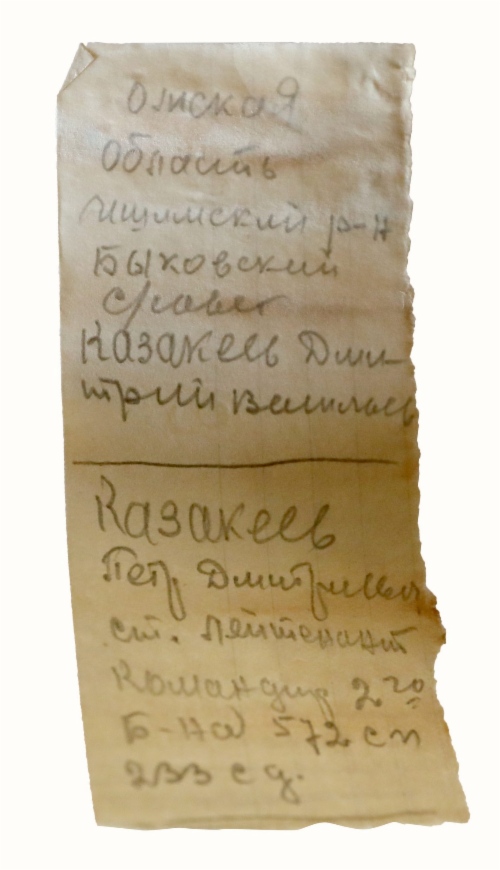 Омская
Область
Ишимский р-н
Быковский
с/совет
Казакеев Дми-
трий Васильев
Казакеев
Петр Дмитриевич
ст. лейтенант
Командир 2го
Б-на 572 сп
233 сд.